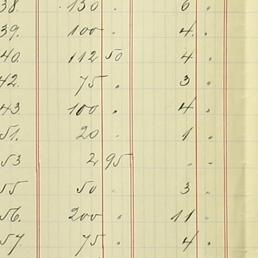 38. 130 . 6 .
39. 100 . 4 .
40. 112 50 4 .
42. 75 . 3 .
43. 100 . 4 .
51. 20 . 1 .
53 2 95 - -
55 50 . 3 .
56. 200 . 11 .
57. 75 . 4 .